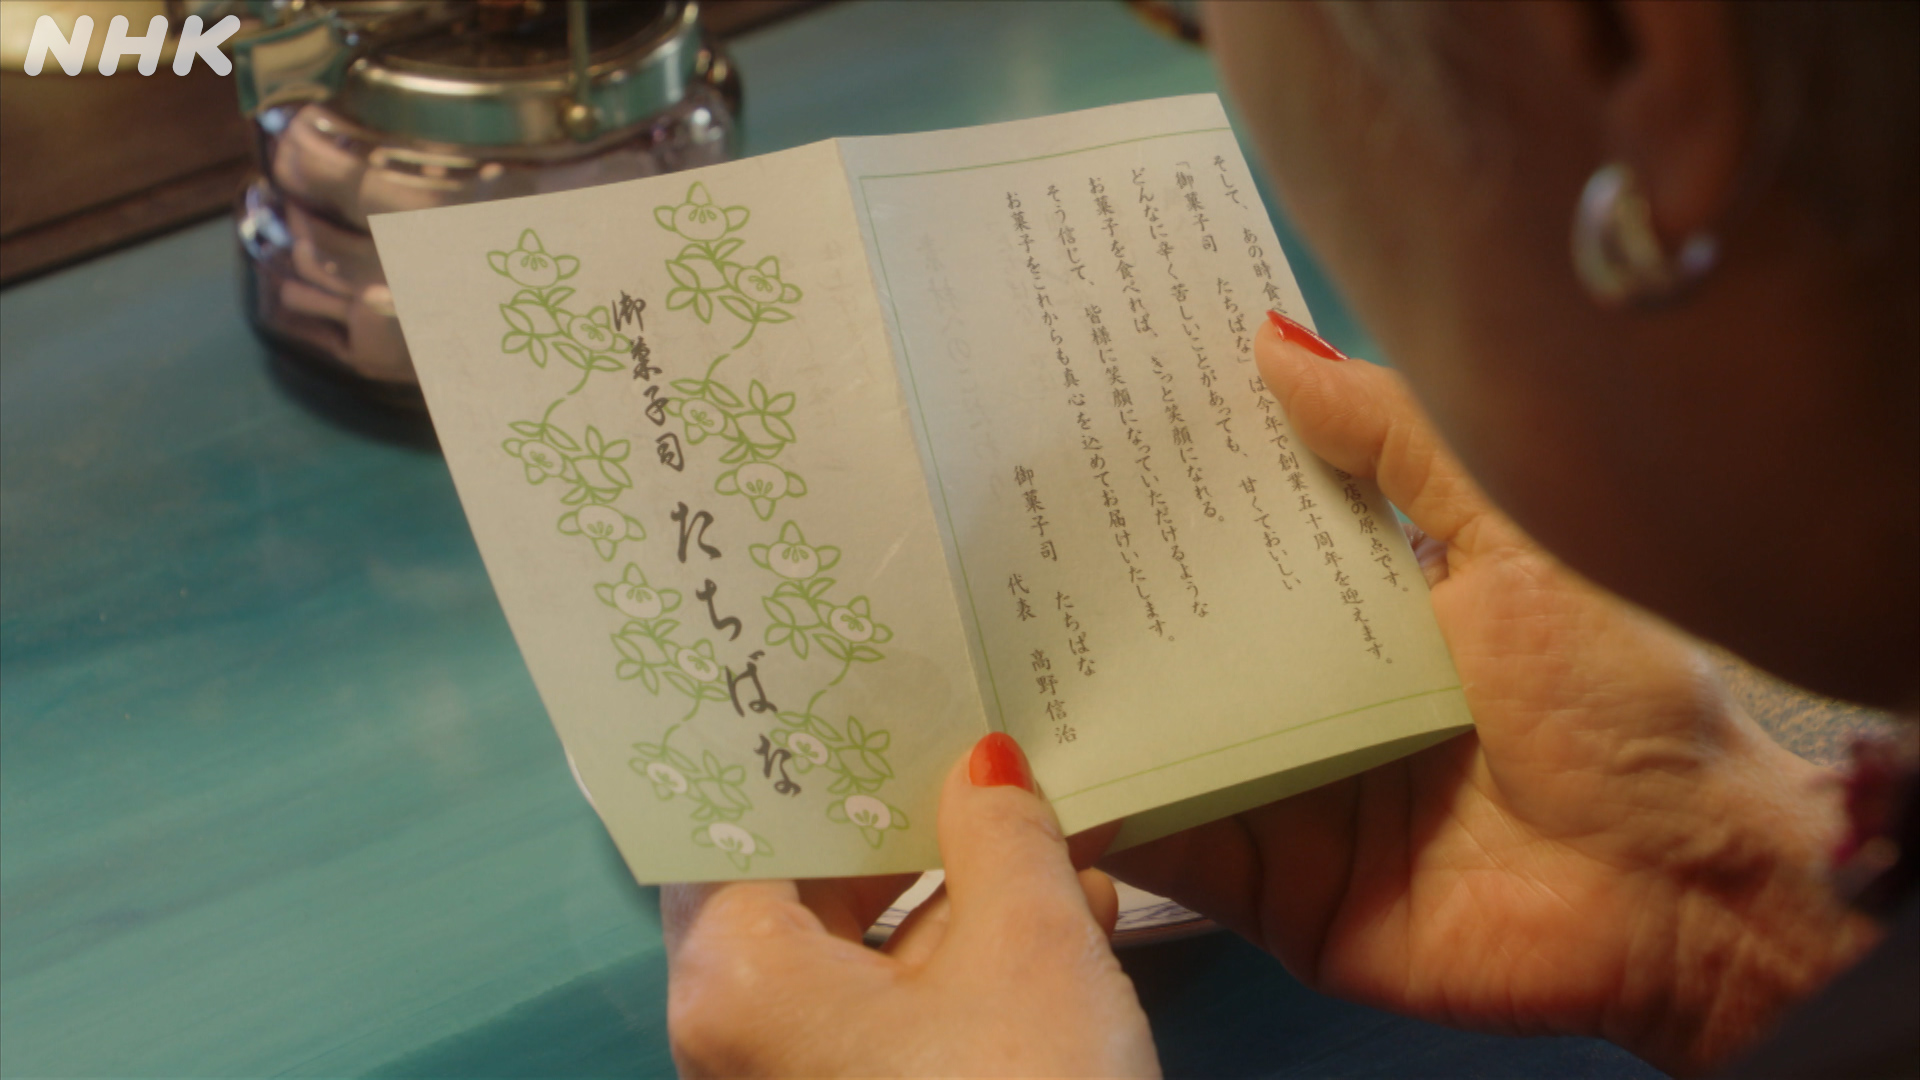 NHK
そして、あの時食べ
店の原点です。
「御菓子司　たちばな」は今年で創業五十周年を迎えます。
どんなに辛く苦しいことがあっても、甘くておいしい
お菓子を食べれば、きっと笑顔になれる。
そう信じて、皆様に笑顔になっていただけるような
お菓子をこれからも真心を込めてお届けいたします。
御菓子司　たちばな
代表　高野信治
御菓子司 たちばな